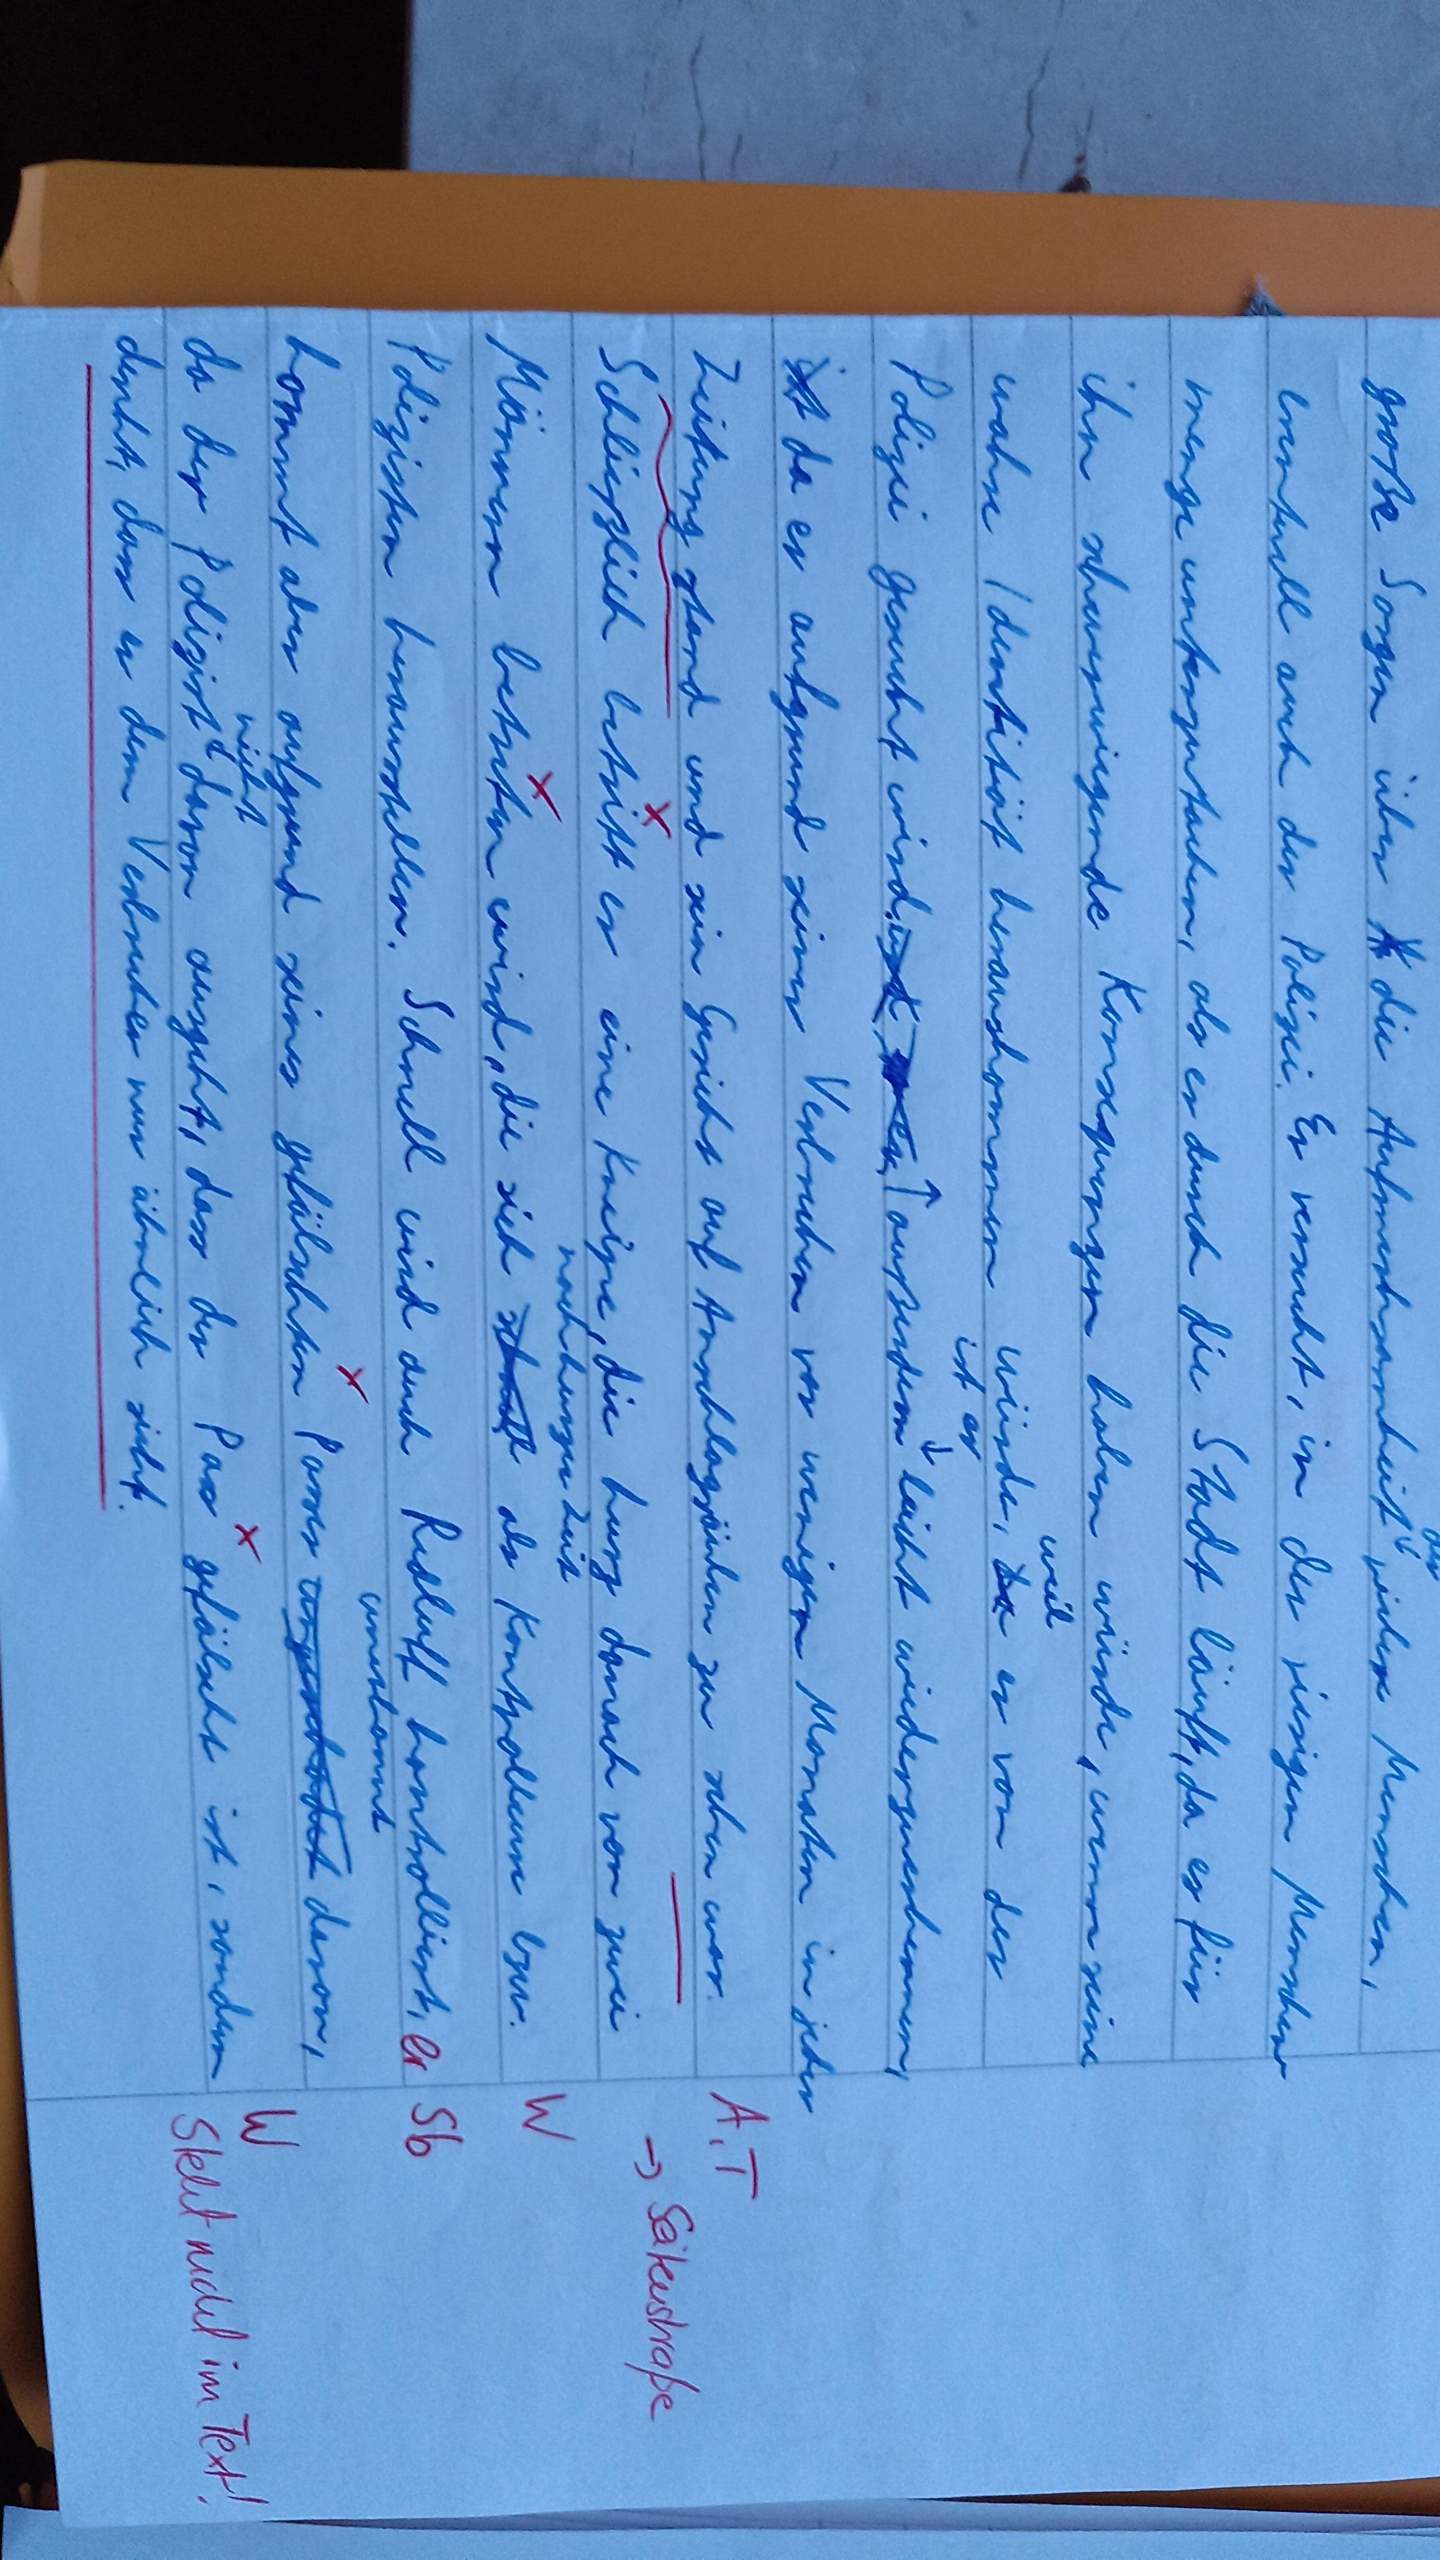 der
große Sorgen über die Aufmerksamkeit vielen Menschen,
eventuell auch der Polizei. Er versucht, in der riesigen Menschen
menge unterzutauchen, als er durch die Stadt läuft, da es für
ihn schwerwiegende Konsequenzen haben würde, wenn seine
weil
wahre Identität herauskommen würde, er von der
ist er
Polizei gesucht wird, ausserdem leicht wiederzuerkennen,
da er aufgrund seiner Verbrechen vor wenigen Monaten in jeder
Zeitung stand und sein Gesicht auf Anschlagsäulen zu sehen war. A, T
Schließlich betritt er eine Kneipe, die kurz danach von zwei → Säkestraße
nach kurzer Zeit
Männern betreten wird, die sich als Kontrolleure bzw. W
Polizisten herausstellen. Schnell wird auch Redluff kontrolliert, er Sb
unerkannt
kommt aber aufgrund seines gefälschten Passes davon,
nicht
da der Polizist davon ausgeht, dass der Pass gefälscht ist, sondern W
denkt, dass er dem Verbrecher nur ähnlich sieht. Steht nicht im Text!